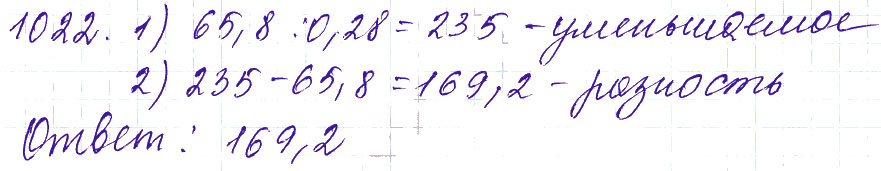 1022. 1) 65,8 : 0,28 = 235 - уменьшаемое
2) 235 - 65,8 = 169,2 - разность
Ответ: 169,2